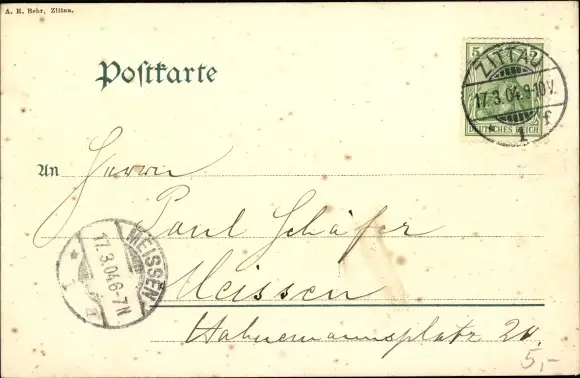 A. K. Behr, Zittau.
Postkarte
5 5
ZITTAU
17.3.04.9-10V.
* 1 f
DEUTSCHES REICH
An Herrn
Paul Schäfer
MEISSEN
17.3.04.6-7N
* 1 a
Meissen
Hahnemannsplatz 24.
5,-